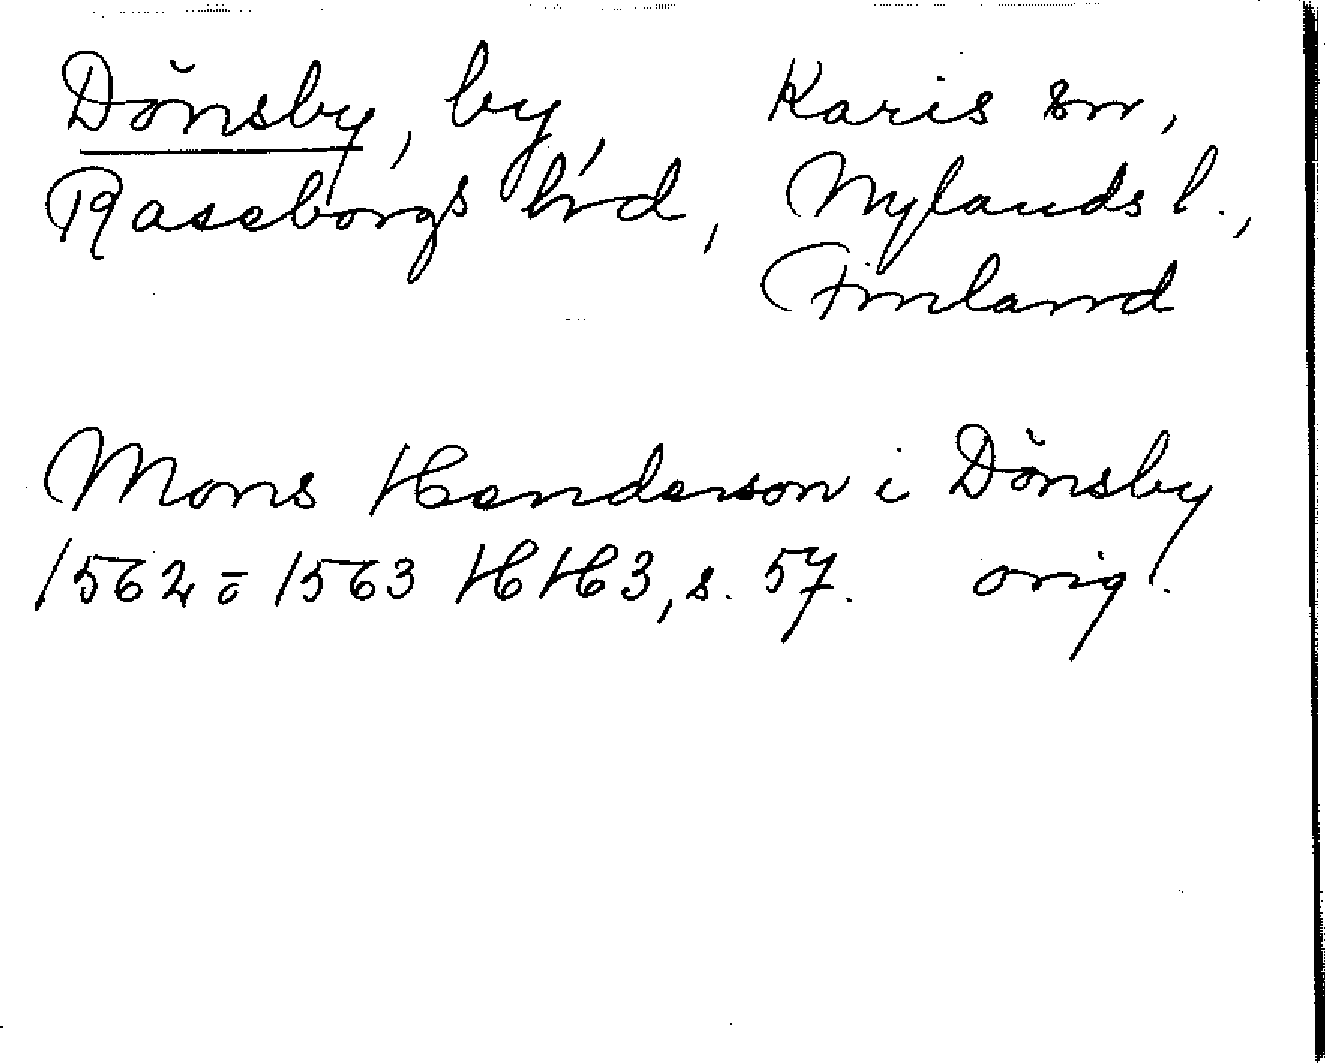 Dönsby, by, Karis sn,
Raseborgs hrd, Nylands l.,
Finland
Mons Henderson i Dönsby
1562 ō 1563 HH3, s. 57. orig.